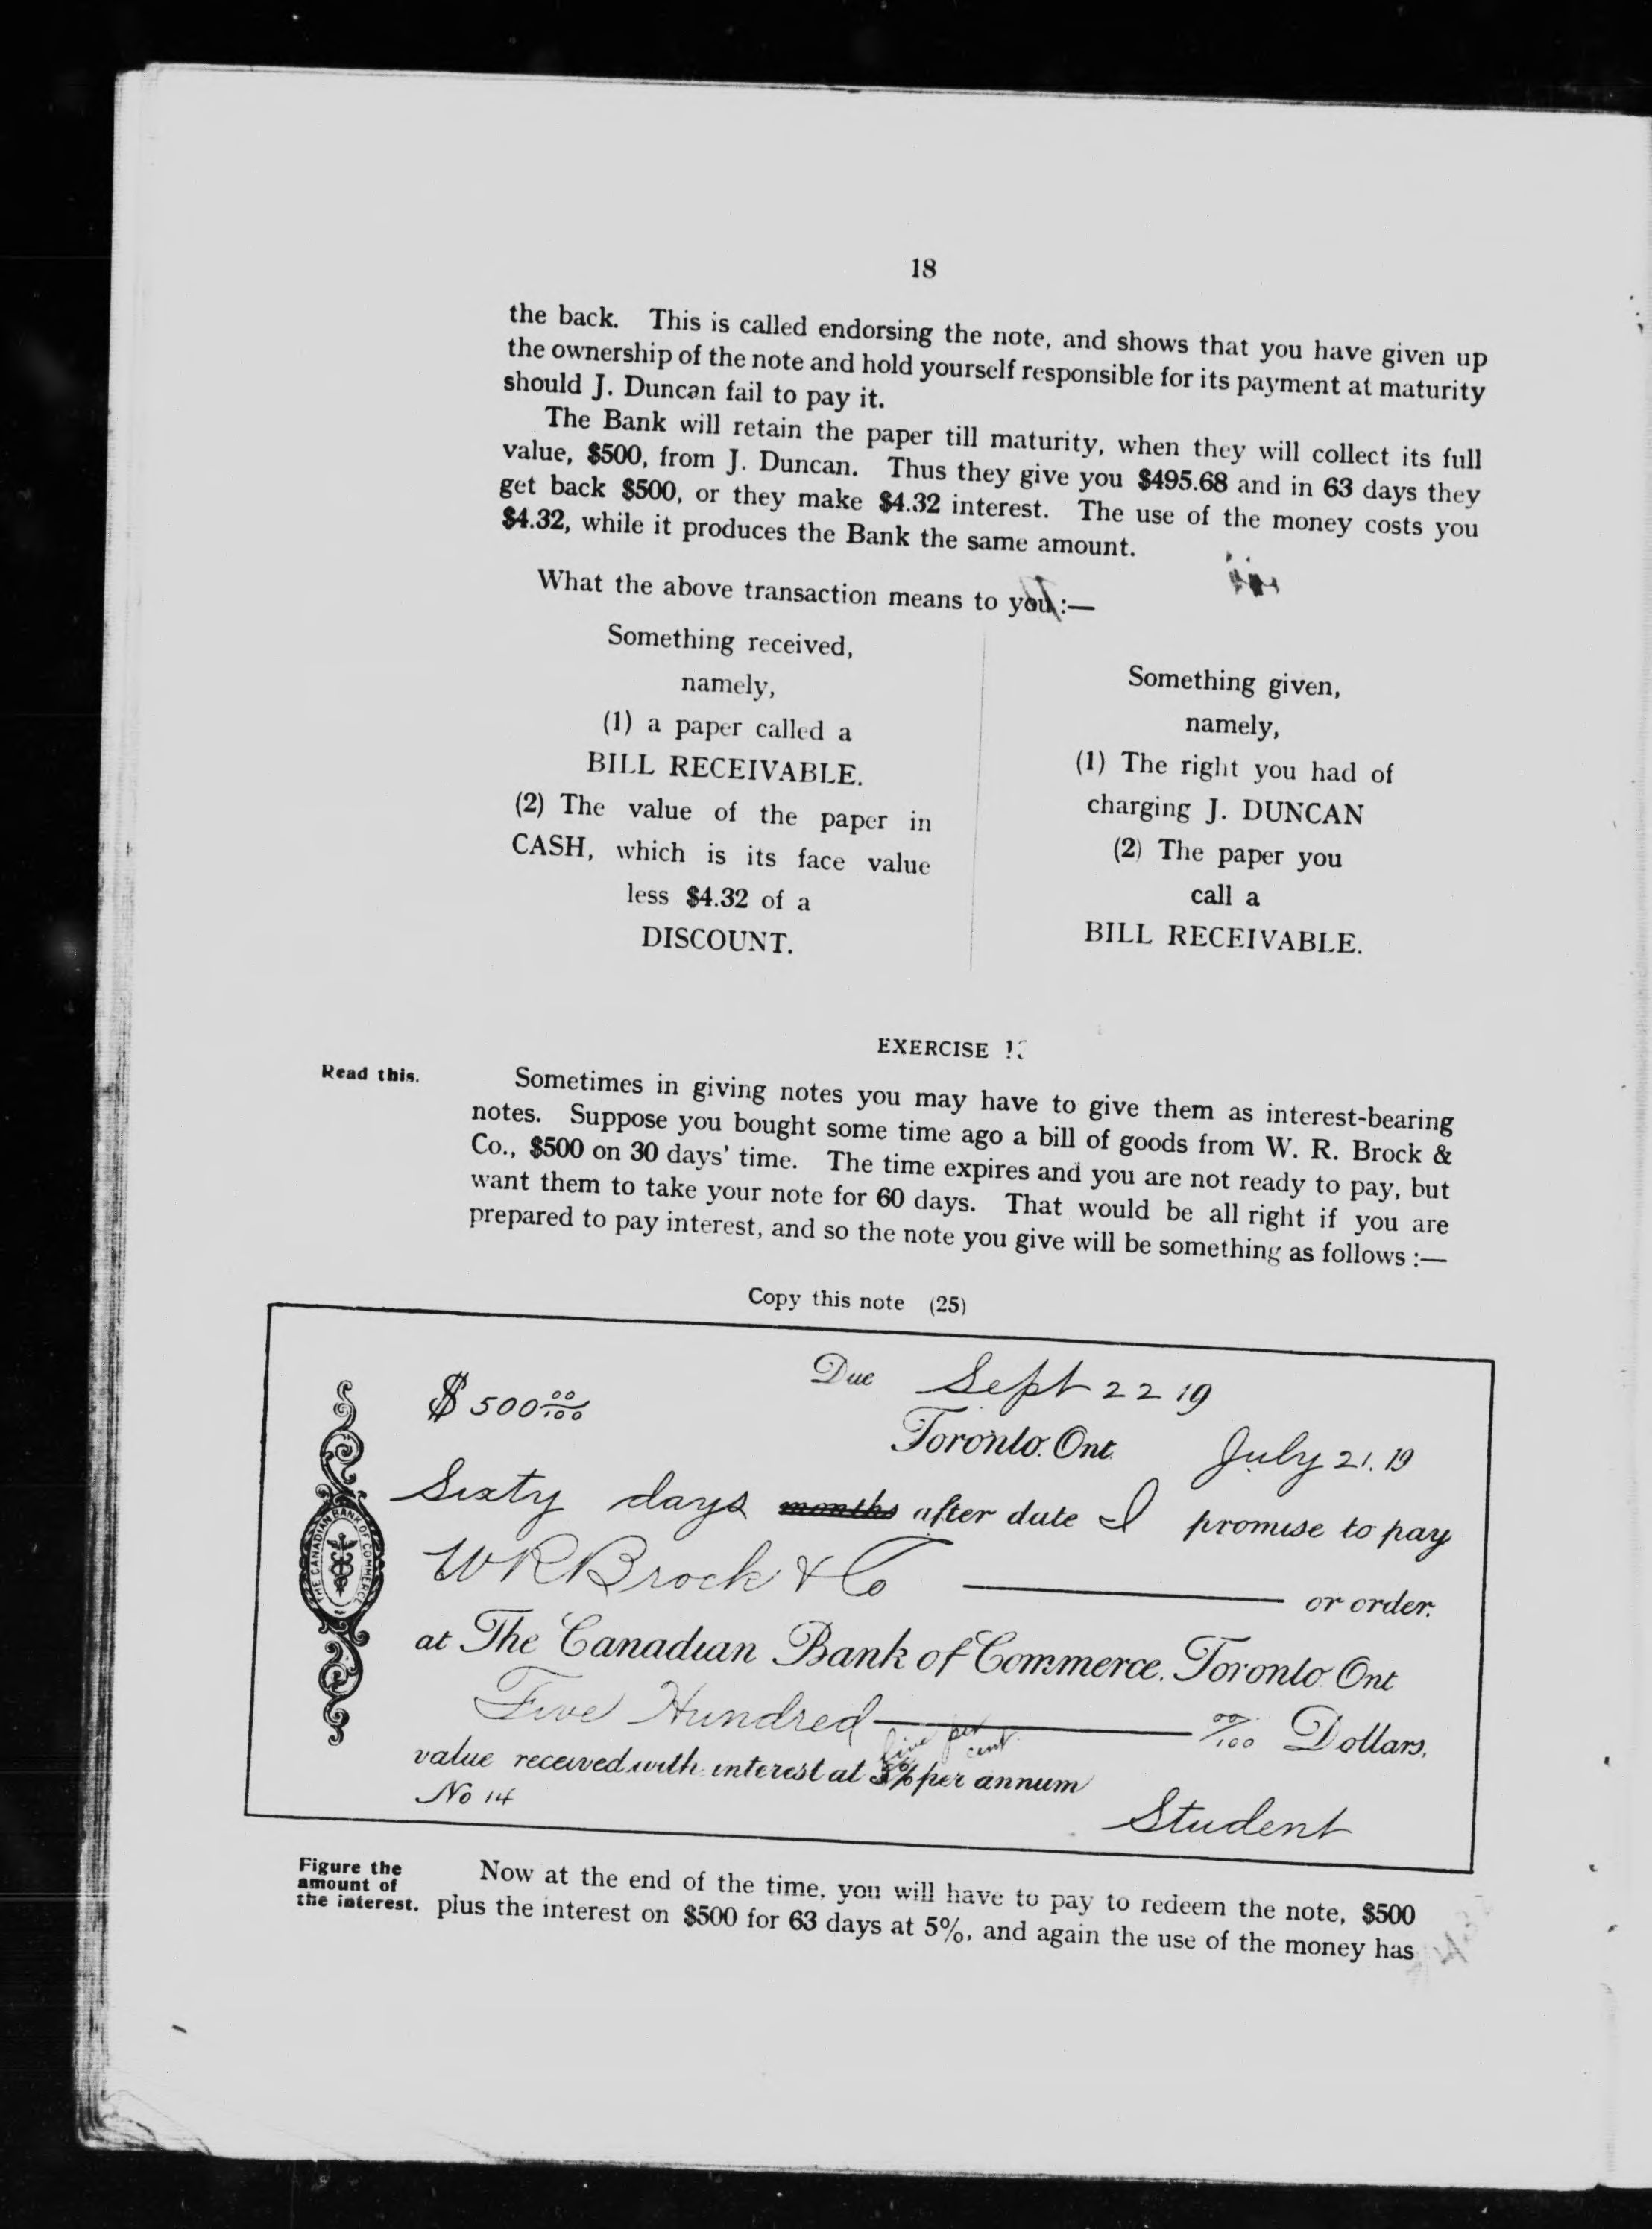 18
the back. This is called endorsing the note, and shows that you have given up
the ownership of the note and hold yourself responsible for its payment at maturity
should J. Duncan fail to pay it.
The Bank will retain the paper till maturity, when they will collect its full
value, $500, from J. Duncan. Thus they give you $495.68 and in 63 days they
get back $500, or they make $4.32 interest. The use of the money costs you
$4.32, while it produces the Bank the same amount.
What the above transaction means to you :—
Something received,
namely,
(1) a paper called a
BILL RECEIVABLE.
(2) The value of the paper in
CASH, which is its face value
less $4.32 of a
DISCOUNT.
Something given,
namely,
(1) The right you had of
charging J. DUNCAN
(2) The paper you
call a
BILL RECEIVABLE.
EXERCISE
Read this.
Sometimes in giving notes you may have to give them as interest-bearing
notes. Suppose you bought some time ago a bill of goods from W. R. Brock &
Co., $500 on 30 days' time. The time expires and you are not ready to pay, but
want them to take your note for 60 days. That would be all right if you are
prepared to pay interest, and so the note you give will be something as follows :—
Copy this note (25)
Due Sept 22 19
$ 500 00/100
Toronto. Ont. July 21. 19
Sixty days months after date I promise to pay
W R Brock & Co or order.
at The Canadian Bank of Commerce. Toronto. Ont
Five Hundred 00/100 Dollars.
five per cent
value received with interest at % per annum
No 14
Student
THE CANADIAN BANK OF COMMERCE
Figure the
amount of
the interest.
Now at the end of the time, you will have to pay to redeem the note, $500
plus the interest on $500 for 63 days at 5%, and again the use of the money has